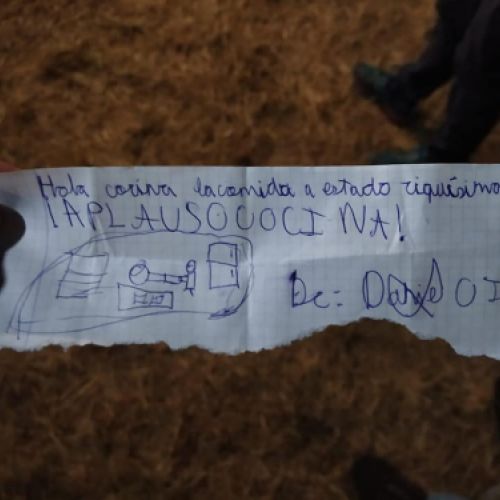 Hola cocina la comida a estado riquísima
¡APLAUSO COCINA!
De: Dariel O